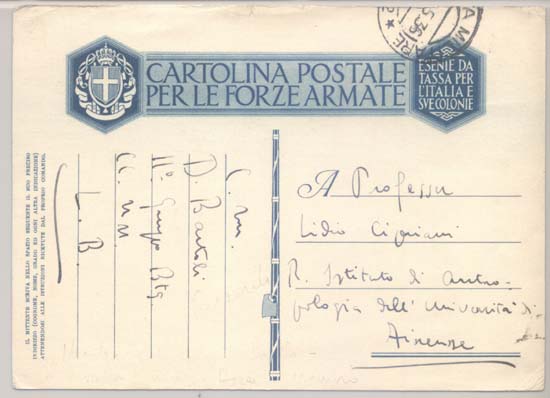 CARTOLINA POSTALE
PER LE FORZE ARMATE
ESENTE DA
TASSA PER
L'ITALIA E
SVE COLONIE
IL MITTENTE SCRIVA NELLO SPAZIO SEGUENTE IL SUO PRECISO
INDIRIZZO (COGNOME, NOME, GRADO ED OGNI ALTRA INDICAZIONE)
ATTENENDOSI ALLE ISTRUZIONI RICEVUTE DAL PROPRIO COMANDO.
C. M.
D. Bartoli
II° Gruppo Btg.
CC. NN.
L. B.
A Professor
Lidio Cipriani
R. Istituto di Antro-
pologia dell'Università di
Firenze